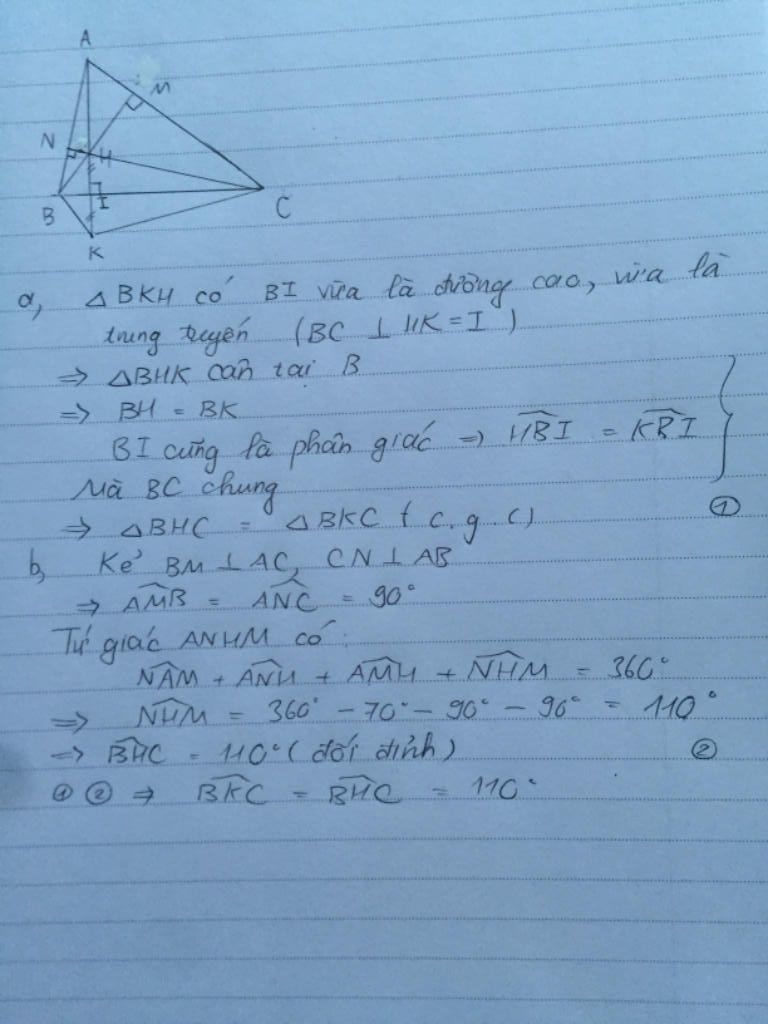 A
M
N
H
B
I
C
K
a, △BKH có BI vừa là đường cao, vừa là
trung tuyến (BC ⊥ HK = I )
⇒ △BHK cân tại B
⇒ BH = BK
BI cũng là phân giác ⇒ \widehat{HBI} = \widehat{KBI}
Mà BC chung
⇒ △BHC = △BKC ( c.g.c) ①
b, Kẻ BM ⊥ AC, CN ⊥ AB
⇒ \widehat{AMB} = \widehat{ANC} = 90°
Tứ giác ANHM có:
\widehat{NAM} + \widehat{ANH} + \widehat{AMH} + \widehat{NHM} = 360°
⇒ \widehat{NHM} = 360° - 70° - 90° - 90° = 110°
⇒ \widehat{BHC} = 110° ( đối đỉnh ) ②
① ② ⇒ \widehat{BKC} = \widehat{BHC} = 110°